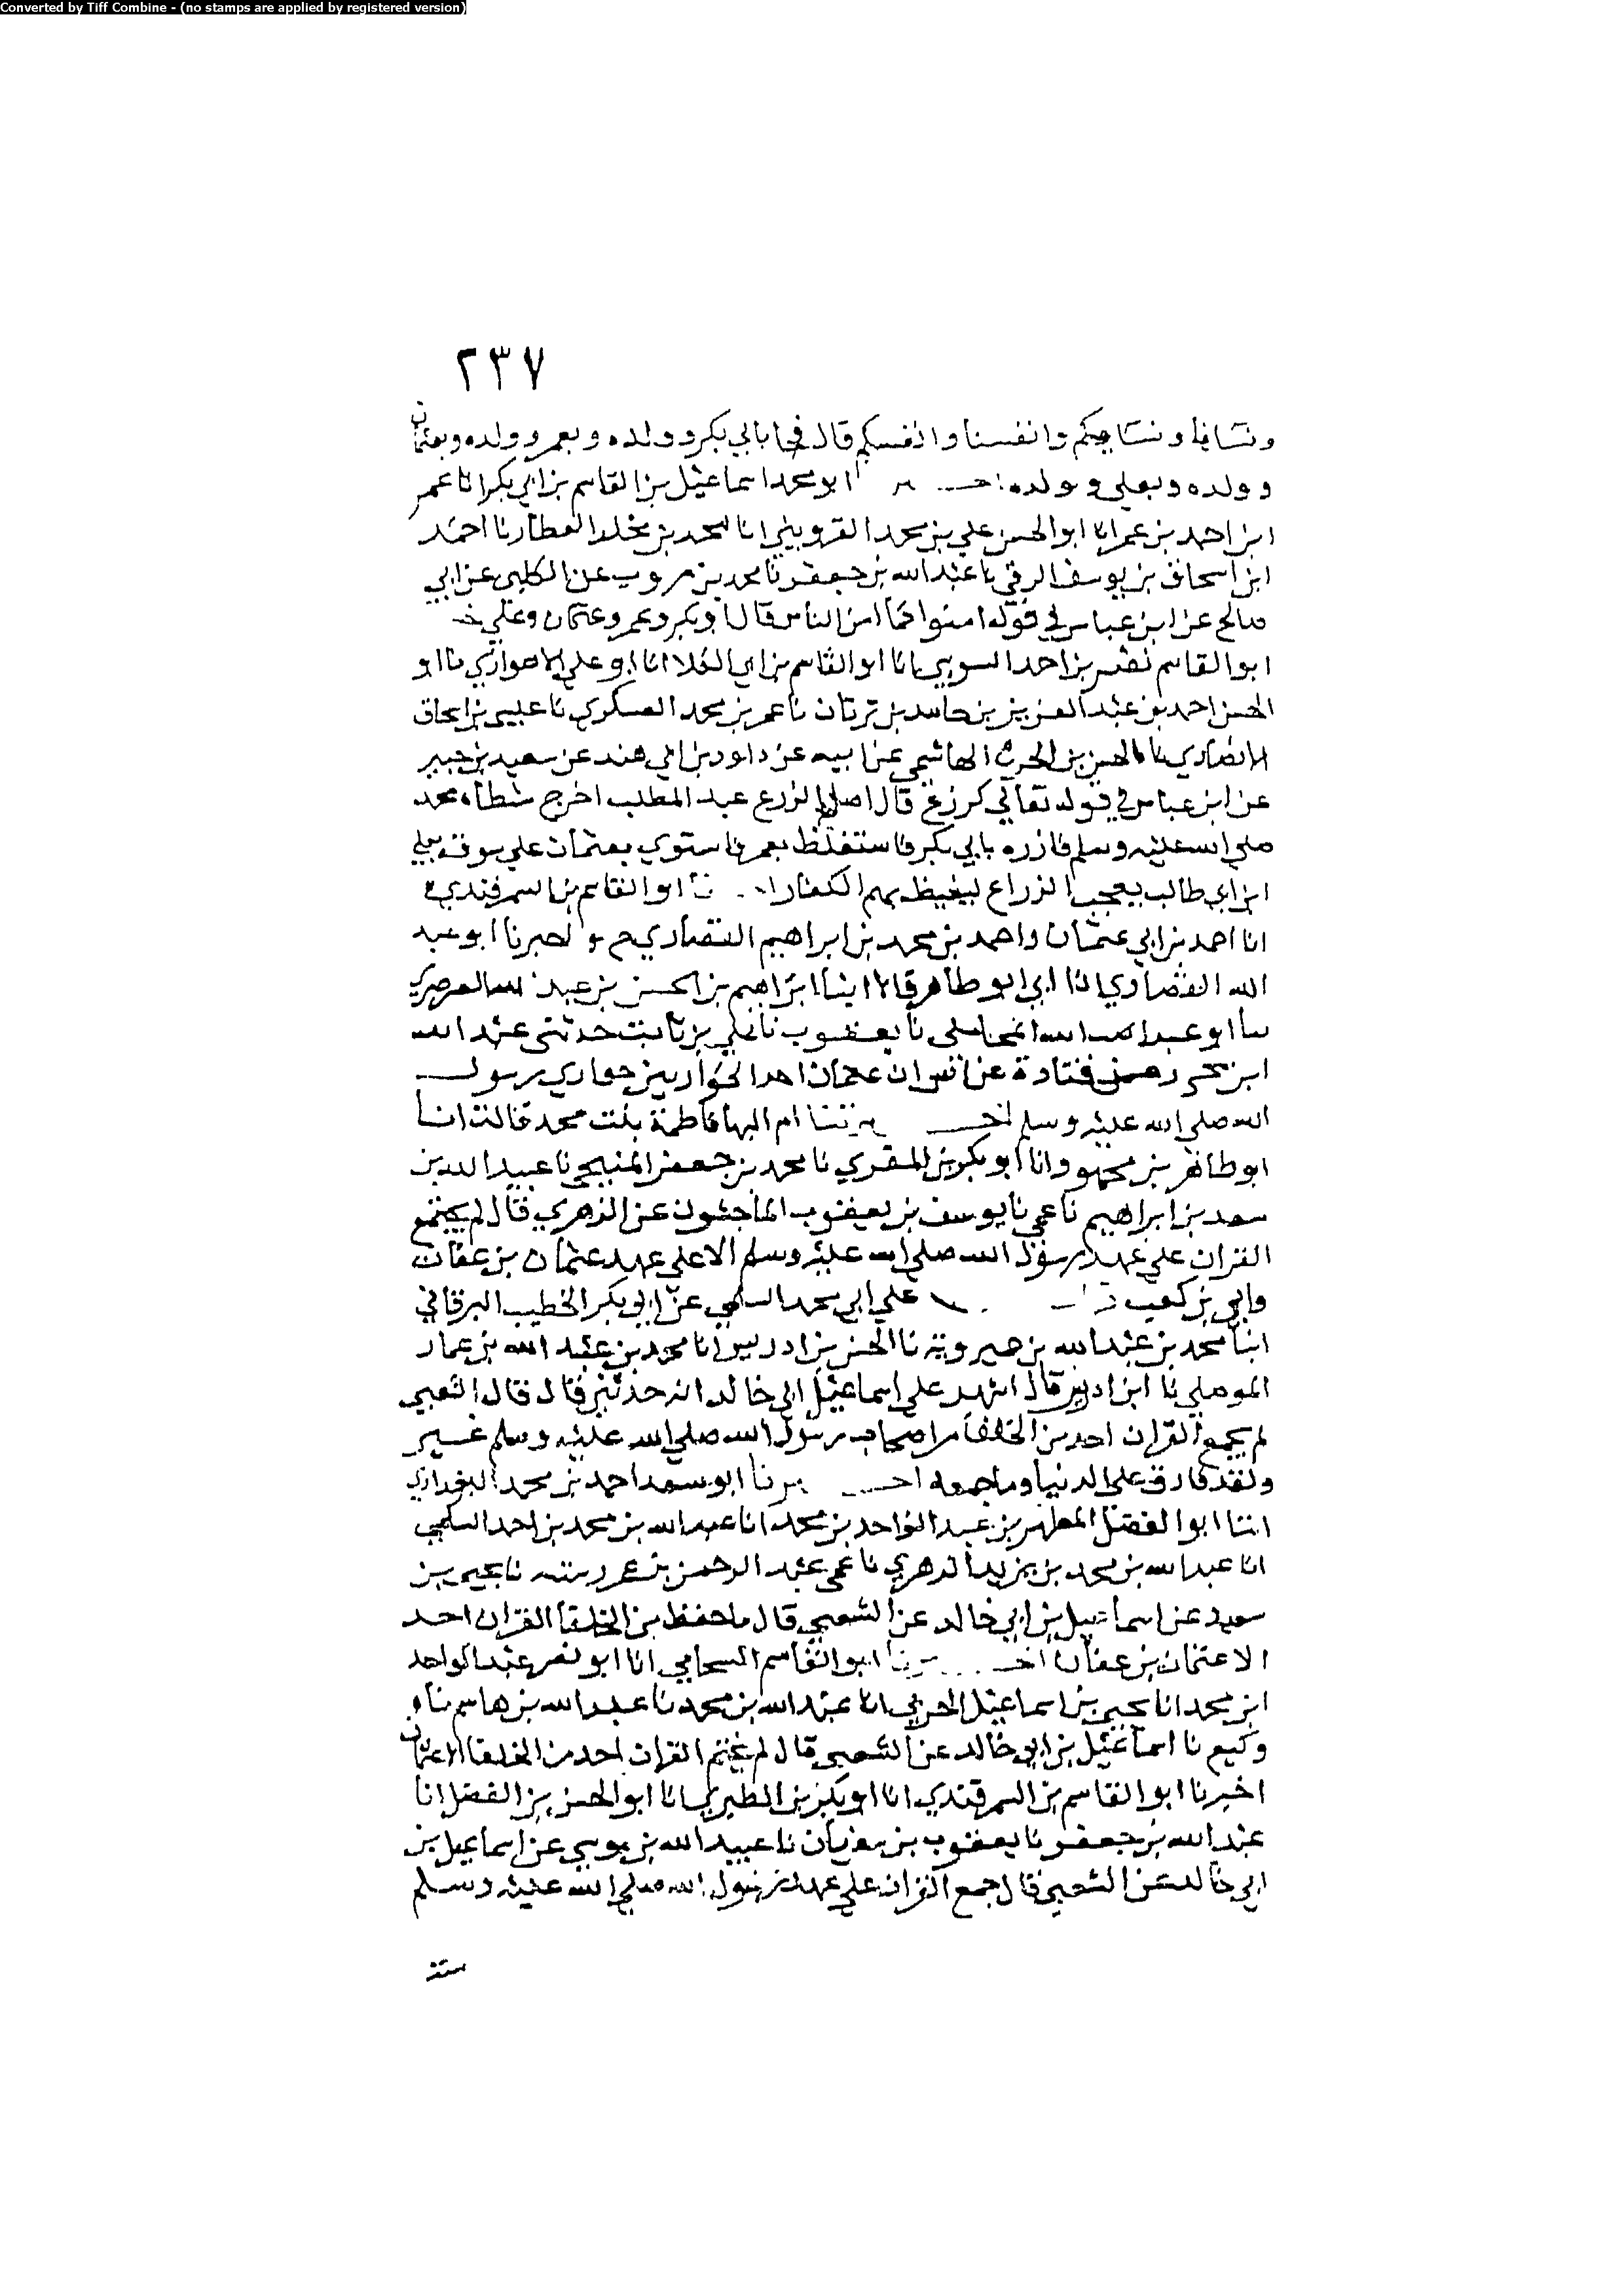 Converted by Tiff Combine - (no stamps are applied by registered version)
٢٣٧
ونساءنا ونساءكم وانفسنا وانفسكم قال فجا بابي بكر وولده وبعمر وولده وبعثمان
وولده وبعلي وولده اخـ ابو محمد اسماعيل بن القاسم بن ابي بكر انا عمر
ابن احمد بن عمر انا ابو الحسن علي بن محمد القزويني انا محمد بن مخلد العطار نا احمد
ابن اسحاق بن يوسف الرقي نا عبد الله بن جعفر نا محمد بن مروان عن الكلبي عن ابي
صالح عن ابن عباس في قوله امنوا كما امن الناس قال ابو بكر وعمر وعثمان وعلي
ابو القاسم نصر بن احمد السوسي انا ابو القاسم بن ابي العلا انا ابو علي الاهوازي نا ابو
الحسن احمد بن عبد العزيز بن حامد بن ترتان نا عمر بن محمد العسكري نا عيسى بن اسحاق
الانصاري نا الحسن بن الحرث الهاشمي عن ابيه عن داود بن ابي هند عن سعيد بن جبير
عن ابن عباس في قوله تعالى كزرع قال اصل الزرع عبد المطلب اخرج شطأه محمد
صلى الله عليه وسلم فازره بابي بكر فاستغلظ بعمر فاستوى بعثمان على سوقه بعلي
ابن ابي طالب يعجب الزراع ليغيظ بهم الكفار ابو القاسم بن السمرقندي
انا احمد بن ابي عثمان واحمد بن محمد بن ابراهيم القصاري ح واخبرنا ابو عبد
الله القصاري انا ابي ابو طاهر قالا انبا ابراهيم بن الحسن بن عبد الله الصرصري
نا ابو عبد الله المحاملي نا يعقوب نا علي بن ثابت حدثني عبد الله
ابن قتادة عن انس ان عثمان احد الحواريين حواري رسول
الله صلى الله عليه وسلم اخـ برتنا ام البها فاطمة بنت محمد قالت انا
ابو طاهر بن محمود انا ابو بكر بن المقري نا محمد بن جعفر المنبجي نا عبيد الله بن
سعد بن ابراهيم نا عمي نا يوسف بن يعقوب الماجشون عن الزهري قال لم يجتمع
القران على عهد رسول الله صلى الله عليه وسلم الا على عهد عثمان بن عفان
وابي بن كعب علي ابي محمد السلمي عن ابي بكر الخطيب البرقاني
انبا محمد بن عبد الله بن خميرويه نا الحسن بن ادريس انا محمد بن عبد الله بن عمار
الموصلي نا ابن ادريس قال اشهد على اسماعيل ابي خالد انه حدثني قال قال الشعبي
لم يجمع القران احد من الخلفا من اصحاب رسول الله صلى الله عليه وسلم غير
ولقد فارق علي الدنيا وما جمعه اخـ برنا ابو سعد احمد بن محمد البغدادي
انبا ابو الفضل المطهر بن عبد الواحد بن محمد انا عبد الله بن محمد بن احمد السلمي
انا عبد الله بن محمد بن يزيد الزهري نا عمي عبد الرحمن بن عمر رسته نا يحيى بن
سعيد عن اسماعيل بن ابي خالد عن الشعبي قال ما حفظ من الخلفا القران احد
الا عثمان بن عفان اخـ برنا ابو القاسم الشحامي انا ابو نصر عبد الواحد
ابن محمد انا يحيى بن اسماعيل الحربي انا عبد الله بن محمد نا عبد الله بن هاشم نا
وكيع نا اسماعيل بن ابي خالد عن الشعبي قال لم يختم القران احد من الخلفا الا عثمان
اخبرنا ابو القاسم بن السمرقندي انا ابو بكر بن الطبري انا ابو الحسن بن الفضل انا
عبد الله بن جعفر نا يعقوب بن سفيان نا عبيد الله بن موسى عن اسماعيل بن
ابي خالد عن الشعبي قال جمع القران على عهد رسول الله صلى الله عليه وسلم
ستة